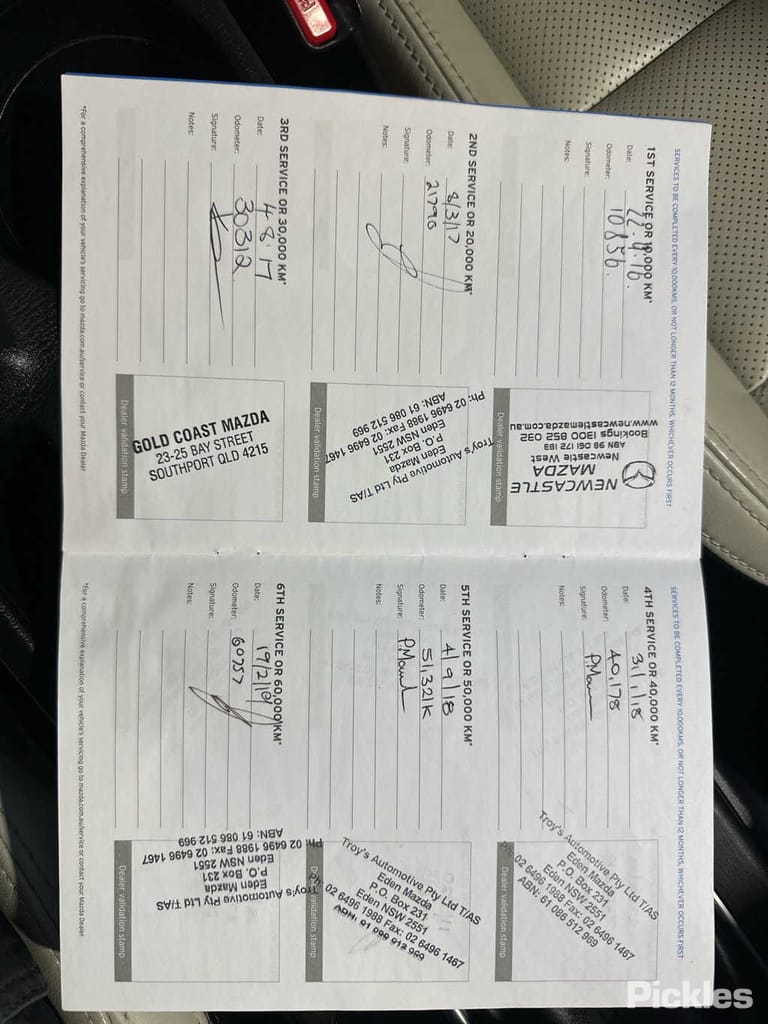 SERVICES TO BE COMPLETED EVERY 10,000KMS, OR NOT LONGER THAN 12 MONTHS, WHICHEVER OCCURS FIRST
1ST SERVICE OR 10,000 KM*
Date: 22.9.16.
Odometer: 10856.
Signature:
Notes:
NEWCASTLE
MAZDA
Newcastle West
ABN 96 061 172 193
Bookings 1300 852 032
www.newcastlemazda.com.au
Dealer validation stamp
2ND SERVICE OR 20,000 KM*
Date: 8/3/17
Odometer: 21790
Signature:
Notes:
Troy's Automotive Pty Ltd T/AS
Eden Mazda
P.O. Box 231
Eden NSW 2551
Ph: 02 6496 1988 Fax: 02 6496 1467
ABN: 61 086 512 969
Dealer validation stamp
3RD SERVICE OR 30,000 KM*
Date: 4.8.17
Odometer: 30312
Signature:
Notes:
GOLD COAST MAZDA
23-25 BAY STREET
SOUTHPORT QLD 4215
Dealer validation stamp
*For a comprehensive explanation of your vehicle's servicing go to mazda.com.au/service or contact your Mazda Dealer
SERVICES TO BE COMPLETED EVERY 10,000KMS, OR NOT LONGER THAN 12 MONTHS, WHICHEVER OCCURS FIRST
4TH SERVICE OR 40,000 KM*
Date: 31/1/18
Odometer: 40,178
Signature:
Notes:
Troy's Automotive Pty Ltd T/AS
Eden Mazda
P.O. Box 231
Eden NSW 2551
Ph: 02 6496 1988 Fax: 02 6496 1467
ABN: 61 086 512 969
Dealer validation stamp
5TH SERVICE OR 50,000 KM*
Date: 4/9/18
Odometer: 51,321K
Signature:
Notes:
Troy's Automotive Pty Ltd T/AS
Eden Mazda
P.O. Box 231
Eden NSW 2551
Ph: 02 6496 1988 Fax: 02 6496 1467
ABN: 61 086 512 969
Dealer validation stamp
6TH SERVICE OR 60,000 KM*
Date: 19/2/19
Odometer: 60757
Signature:
Notes:
Troy's Automotive Pty Ltd T/AS
Eden Mazda
P.O. Box 231
Eden NSW 2551
Ph: 02 6496 1988 Fax: 02 6496 1467
ABN: 61 086 512 969
Dealer validation stamp
*For a comprehensive explanation of your vehicle's servicing go to mazda.com.au/service or contact your Mazda Dealer
Pickles